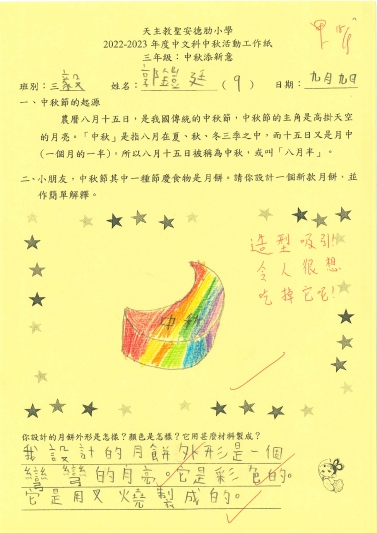 天主教聖安德肋小學
2022-2023 年度中文科中秋活動工作紙
三年級：中秋添新意
班別：三毅 姓名：郭鎧廷 ( 9 ) 日期：九月九日
甲
一、中秋節的起源
農曆八月十五日，是我國傳統的中秋節，中秋節的主角是高掛天空
的月亮。「中秋」是指八月在夏、秋、冬三季之中，而十五日又是月中
(一個月的一半)，所以八月十五日被稱為中秋，或叫「八月半」。
二、小朋友，中秋節其中一種節慶食物是月餅。請你設計一個新款月餅，並
作簡單解釋。
造型吸引，
令人很想
吃掉它呢！
中秋
你設計的月餅外形是怎樣？顏色是怎樣？它用甚麼材料製成？
我設計的月餅外形是一個
彎彎的月亮。它是彩色的。
它是用叉燒製成的。